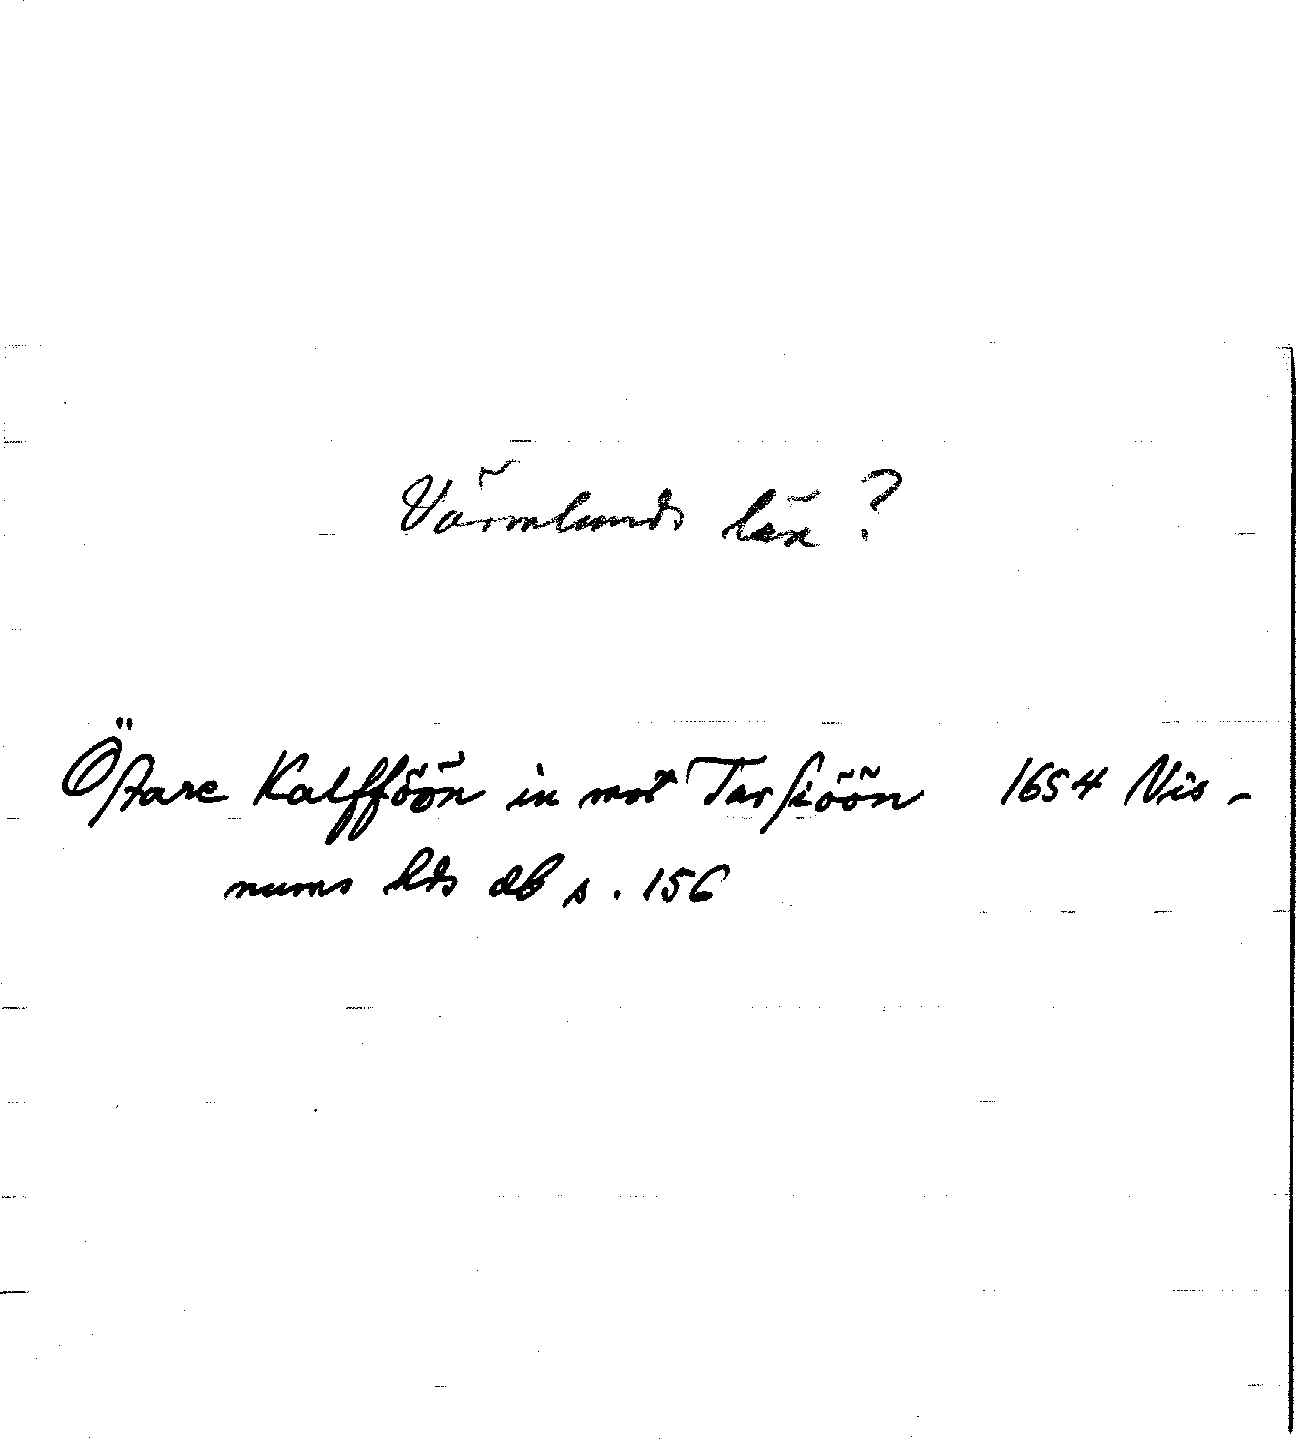 Värmlands län?
Östare Kalfföön in mot Tarsiöön 1654 Vis-
nums hds db s. 156